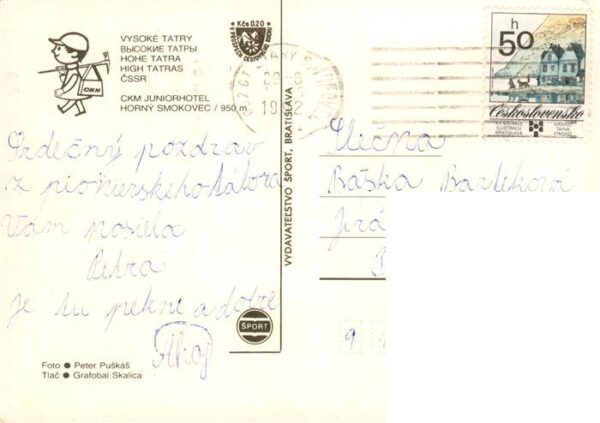 VYSOKÉ TATRY
ВЫСОКИЕ ТАТРЫ
HOHE TATRA
HIGH TATRAS
ČSSR
CKM JUNIORHOTEL
HORNÝ SMOKOVEC / 950 m
CKM
Kčs 0.20
Srdečný pozdrav
z pionierskeho tábora
Vám posiela
Petra
je tu pekne a dobre
Ahoj
Foto ● Peter Puškáš
Tlač ● Grafobal Skalica
VYDAVATEĽSTVO ŠPORT, BRATISLAVA
ŠPORT
50 h
Československo
Slečna
Baška Barteková
Jirá
9